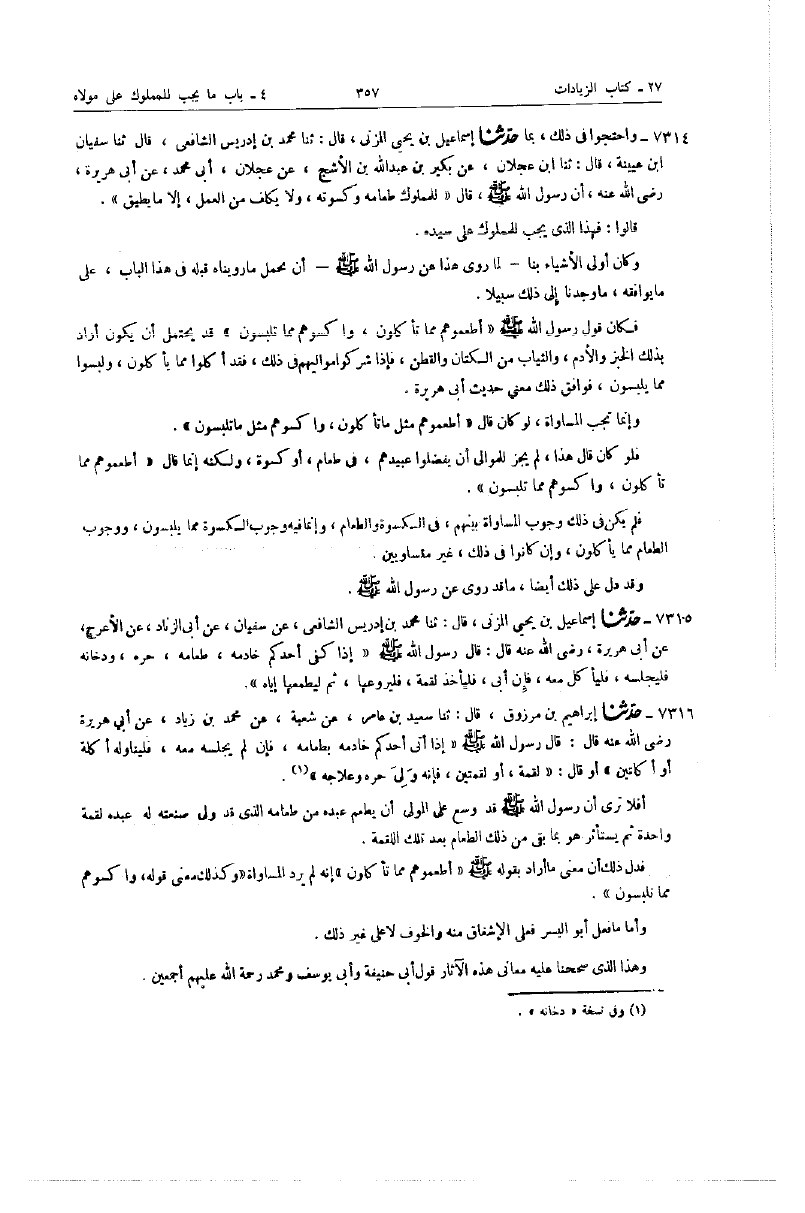 ٢٧ ـ كتاب الزيادات ٣٥٧ ٤ ـ باب ما يجب للمملوك على مولاه
٧٣١٤ ـ واحتجوا فى ذلك ، بما حدثنا إسماعيل بن يحيى المزنى ، قال : ثنا محمد بن إدريس الشافعى ، قال ثنا سفيان
ابن عيينة ، قال : ثنا ابن عجلان ، عن بكير بن عبدالله بن الأشج ، عن عجلان ، أبى محمد ، عن أبى هريرة ،
رضى الله عنه ، أن رسول الله ﷺ ، قال « للمملوك طعامه وكسوته ، ولا يكلف من العمل ، إلا ما يطيق » .
قالوا : فهذا الذى يجب للمملوك على سيده .
وكان أولى الأشياء بنا – لما روى هذا عن رسول الله ﷺ – أن نحمل مارويناه قبله فى هذا الباب ، على
مايوافقه ، ماوجدنا إلى ذلك سبيلا .
فكان قول رسول الله ﷺ « أطعموهم مما تأكلون ، واكسوهم مما تلبسون » قد يحتمل أن يكون أراد
بذلك الخبز والأدم ، والثياب من الكتان والقطن ، فإذا شركوا مواليهم فى ذلك ، فقد أكلوا مما يأكلون ، ولبسوا
مما يلبسون ، فوافق ذلك معنى حديث أبى هريرة .
وإنما تجب المساواة ، لو كان قال « أطعموهم مثل ماتأكلون ، واكسوهم مثل ماتلبسون » .
فلو كان قال هذا ، لم يجز للموالى أن يفضلوا عبيدهم ، فى طعام ، أو كسوة ، ولكنه إنما قال « أطعموهم مما
تأكلون ، واكسوهم مما تلبسون » .
فلم يكن فى ذلك وجوب المساواة بينهم ، فى الكسوة والطعام ، وإنما فيه وجوب الكسوة مما يلبسون ، ووجوب
الطعام مما يأكلون ، وإن كانوا فى ذلك ، غير متساويين .
وقد دل على ذلك أيضا ، ماقد روى عن رسول الله ﷺ .
٧٣١٥ ـ حدثنا إسماعيل بن يحيى المزنى ، قال : ثنا محمد بن إدريس الشافعى ، عن سفيان ، عن أبى الزناد ، عن الأعرج،
عن أبى هريرة ، رضى الله عنه قال : قال رسول الله ﷺ « إذا كفى أحدكم خادمه ، طعامه ، حره ، ودخانه
فليجلسه ، فليأكل معه ، فإن أبى ، فليأخذ لقمة ، فليروغها ، ثم ليطعمها إياه ».
٧٣١٦ ـ حدثنا إبراهيم بن مرزوق ، قال : ثنا سعيد بن عامر ، عن شعبة ، عن محمد بن زياد ، عن أبي هريرة
رضى الله عنه قال : قال رسول الله ﷺ « إذا أتى أحدكم خادمه بطعامه ، فإن لم يجلسه معه ، فليناوله أكلة
أو أكلتين » أو قال : « لقمة ، أو لقمتين ، فإنه وَلِىَ حره وعلاجه »(١) .
أفلا ترى أن رسول الله ﷺ قد وسع على المولى أن يطعم عبده من طعامه الذى قد ولى صنعته له عبده لقمة
واحدة ثم يستأثر هو بما بقى من ذلك الطعام بعد تلك اللقمة .
فدل ذلك أن معنى ماأراد بقوله ﷺ « أطعموهم مما تأكلون » إنه لم يرد المساواة «وكذلك معنى قوله، واكسوهم
مما تلبسون » .
وأما مافعل أبو اليسر فعلى الإشفاق منه والخوف لاعلى غير ذلك .
وهذا الذى صححنا عليه معانى هذه الآثار قول أبى حنيفة وأبى يوسف ومحمد رحمة الله عليهم أجمعين .
(١) وفى نسخة « دخانه » .